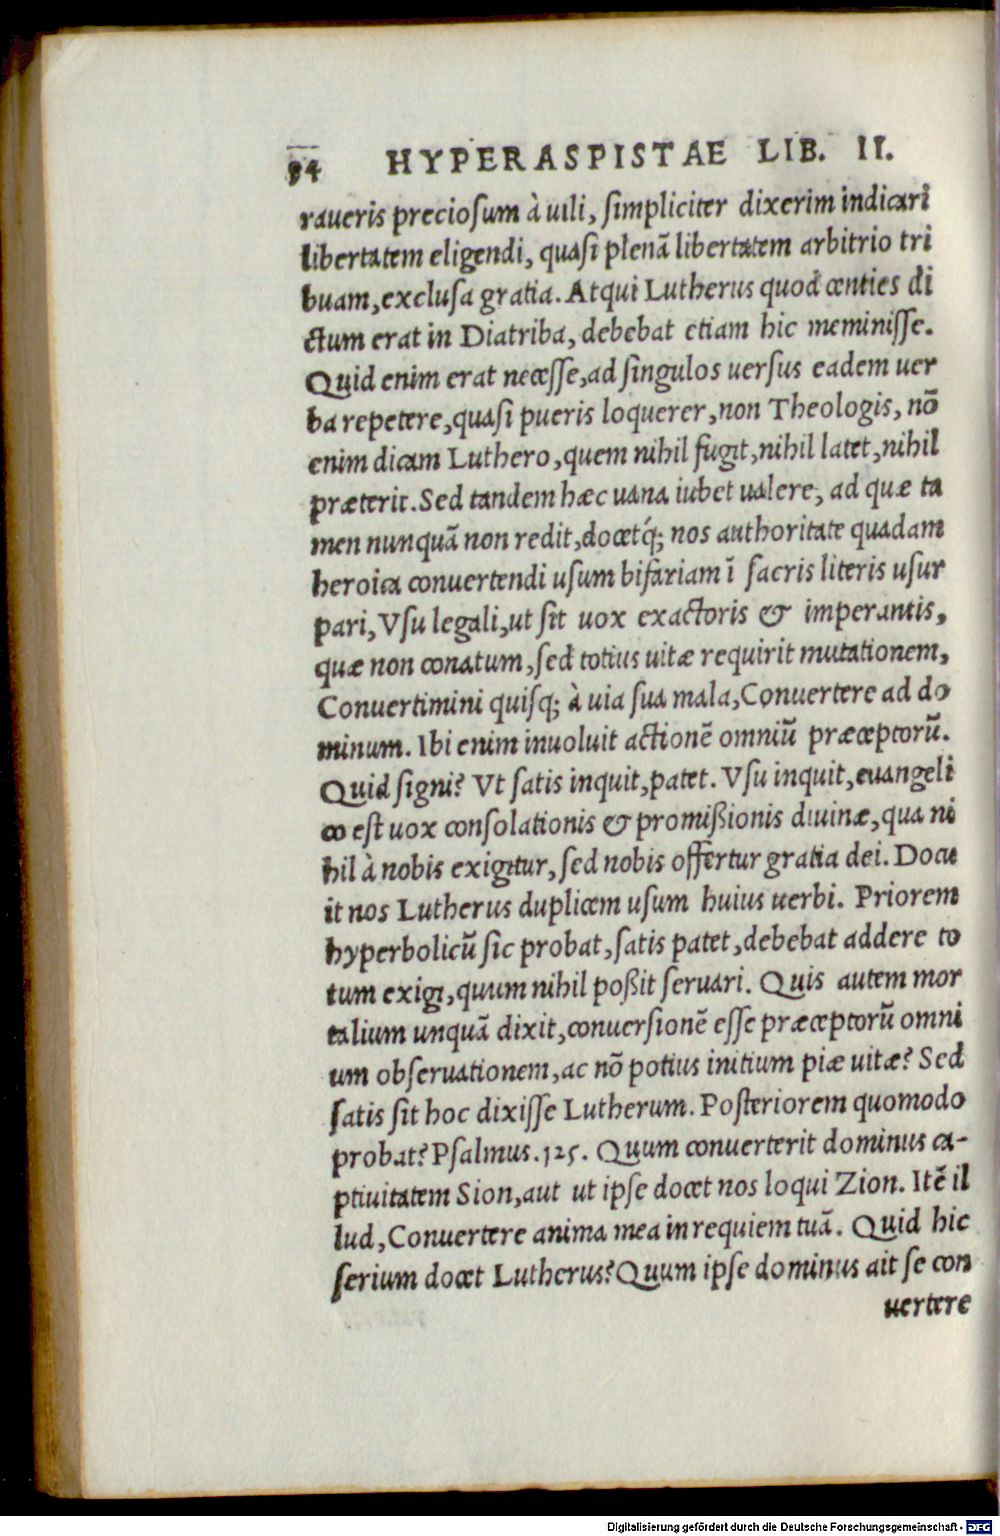 94 HYPERASPISTAE LIB. II.
raueris preciosum à uili, simpliciter dixerim indicari
libertatem eligendi, quasi plenã libertatem arbitrio tri
buam, exclusa gratia. Atqui Lutherus quod centies di
ctum erat in Diatriba, debebat etiam hic meminisse.
Quid enim erat necesse, ad singulos uersus eadem uer
ba repetere, quasi pueris loquerer, non Theologis, nõ
enim dicam Luthero, quem nihil fugit, nihil latet, nihil
præterit. Sed tandem hæc uana iubet ualere, ad quæ ta
men nunquã non redit, docetq́; nos authoritate quadam
heroica conuertendi usum bifariam ĩ sacris literis usur
pari, Vsu legali, ut sit uox exactoris & imperantis,
quæ non conatum, sed totius uitæ requirit mutationem,
Conuertimini quisq; à uia sua mala, Conuertere ad do
minum. Ibi enim inuoluit actionẽ omniũ præceptorũ.
Quid signi? Vt satis inquit, patet. Vsu inquit, euangeli
co est uox consolationis & promißionis diuinæ, qua ni
hil à nobis exigitur, sed nobis offertur gratia dei. Docu
it nos Lutherus duplicem usum huius uerbi. Priorem
hyperbolicũ sic probat, satis patet, debebat addere to
tum exigi, quum nihil poßit seruari. Quis autem mor
talium unquã dixit, conuersionẽ esse præceptorũ omni
um obseruationem, ac nõ potius initium piæ uitæ? Sed
satis sit hoc dixisse Lutherum. Posteriorem quomodo
probat? Psalmus.125. Quum conuerterit dominus ca-
ptiuitatem Sion, aut ut ipse docet nos loqui Zion. Itẽ il
lud, Conuertere anima mea in requiem tuã. Quid hic
serium docet Lutherus? Quum ipse dominus ait se con
uertere
Digitalisierung gefördert durch die Deutsche Forschungsgemeinschaft - DFG